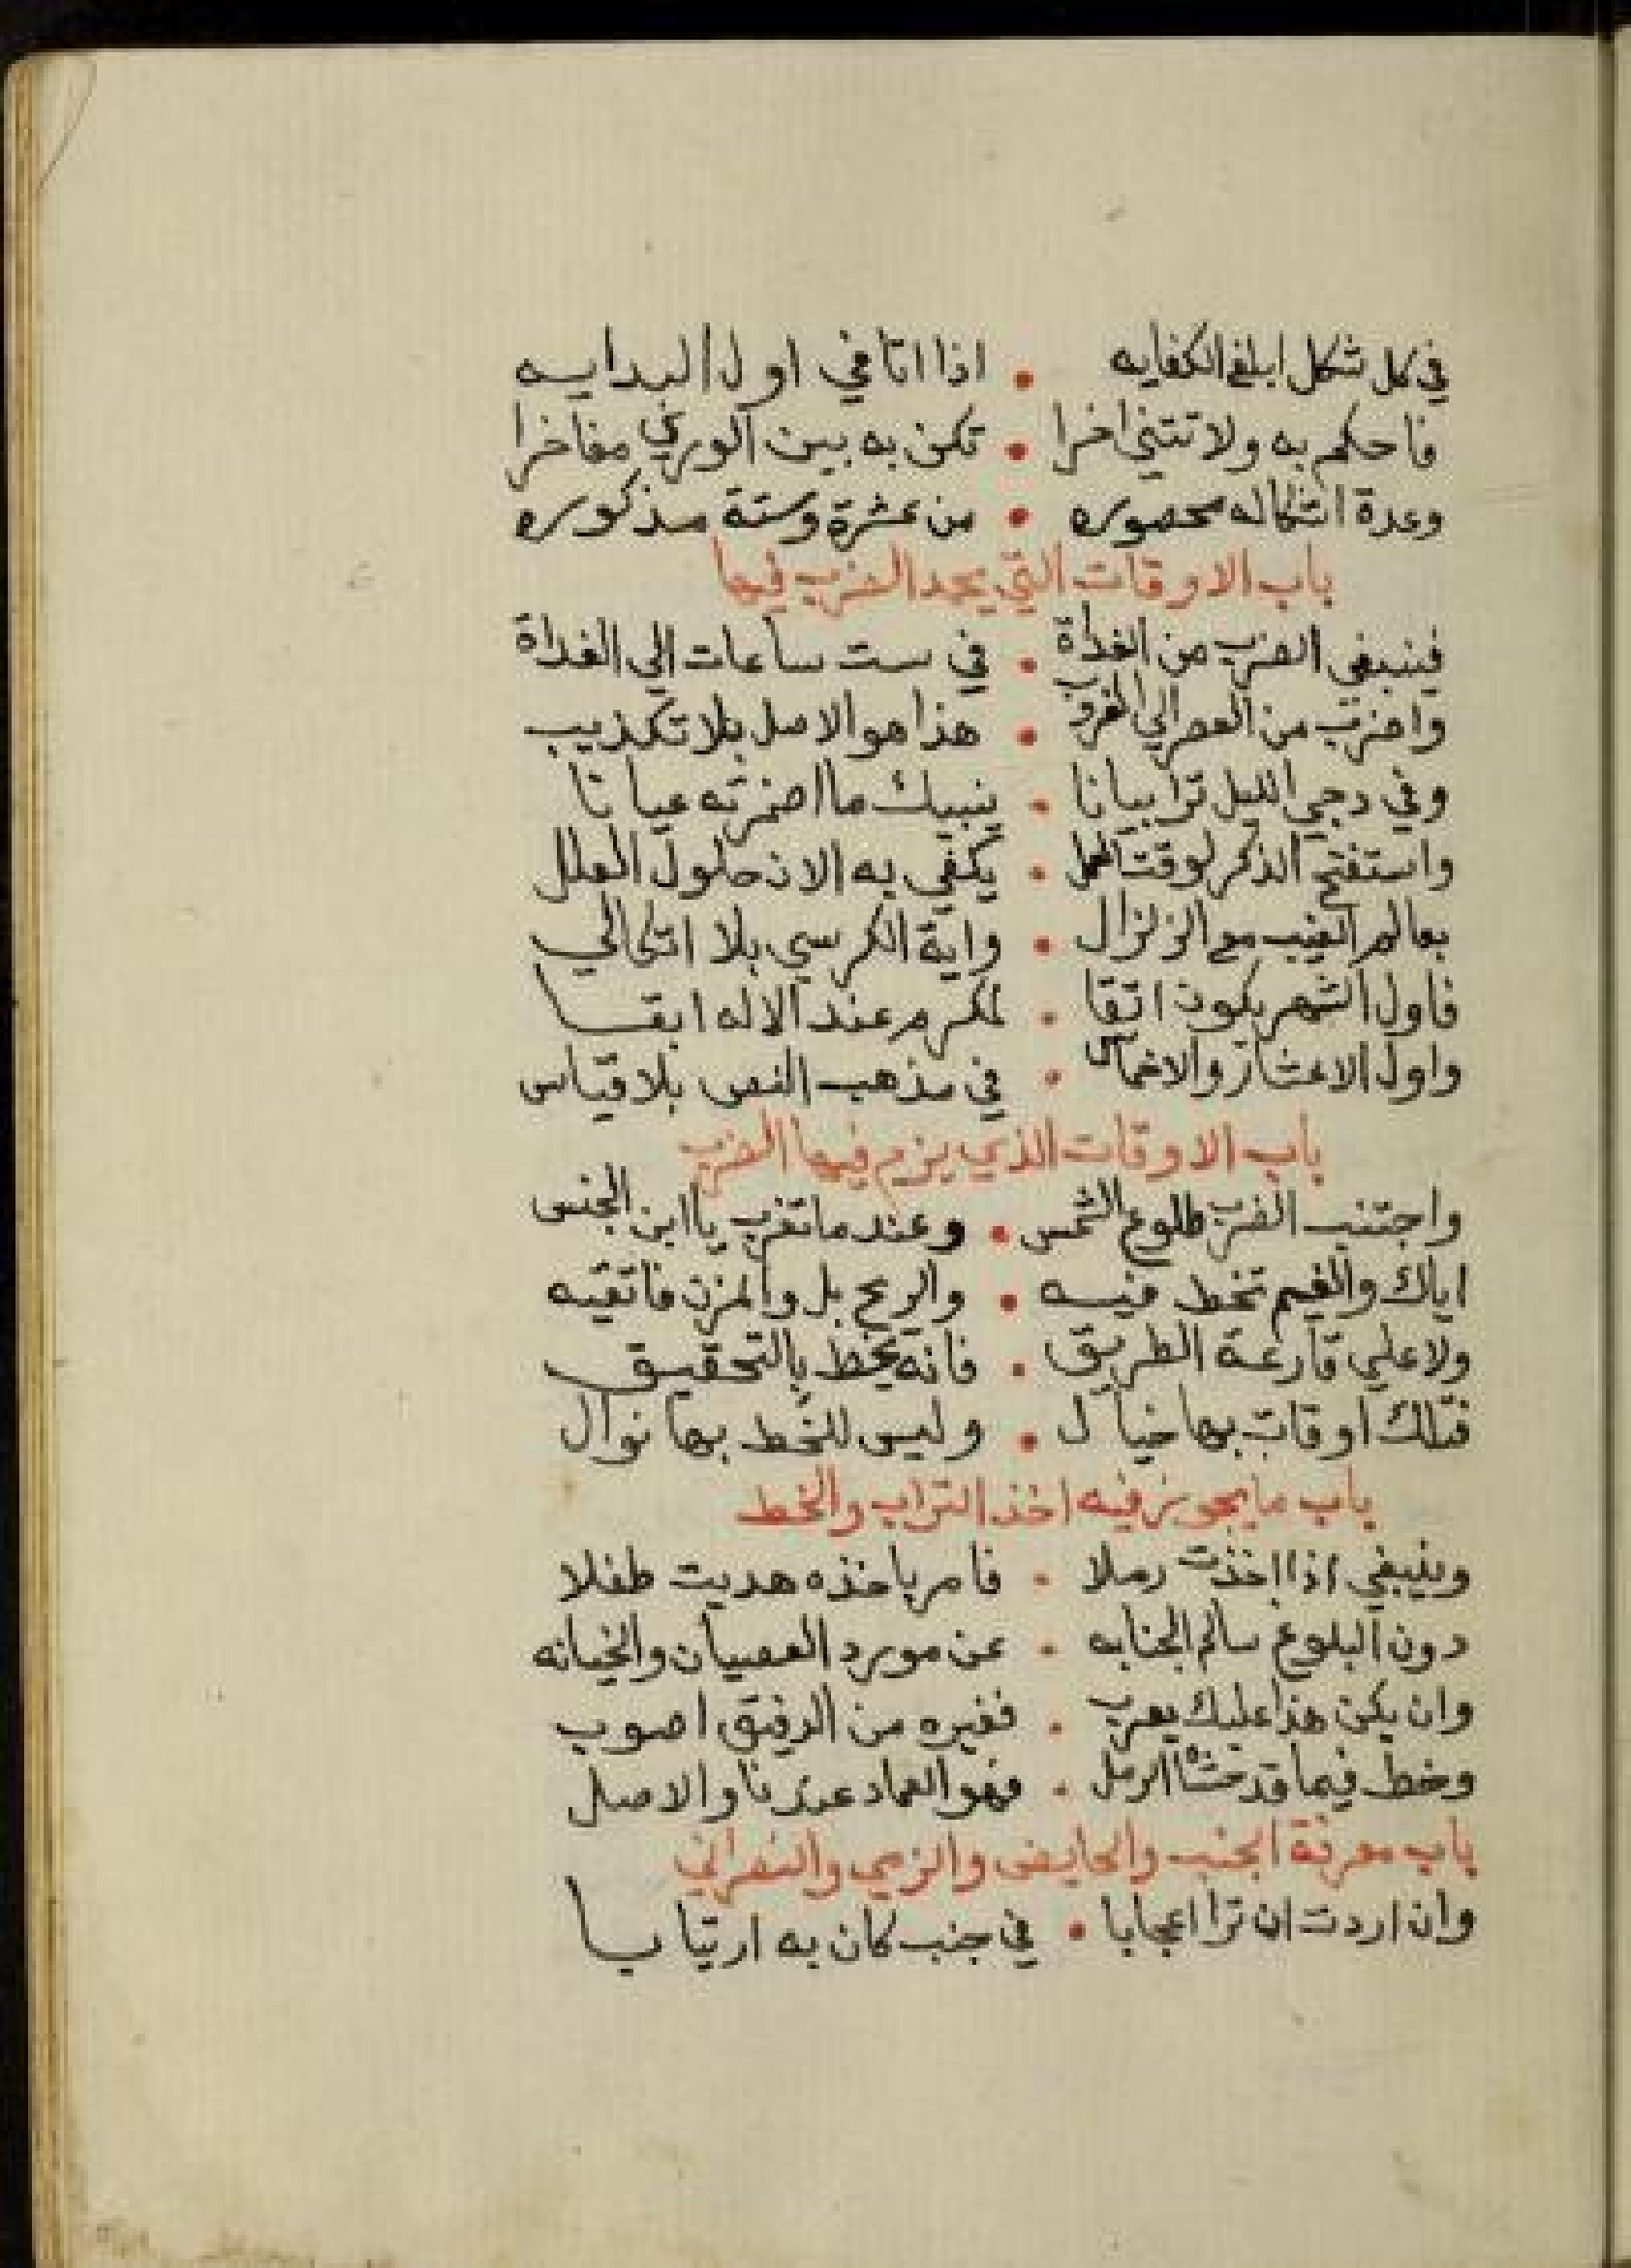 في كل شكل ابلغ الكفايه • اذا اتا في اول البدايه
فاحكم به ولا تتني اخرا • تكن به بين الوري مفاخرا
وعدة اشكاله محصوره • من عشرة وستة مذكوره
باب الاوقات التي يحمد الضرب فيها
فينبغي الضرب من الغداة • في ست ساعات الي الغداة
واضرب من العصر الي الغروب • هذا هو الاصل بلا تكذيب
وفي دجي الليل ترا بيانا • ينبيك ما اضمرته عيانا
واستفتح الذكر لوقت العمل • يكفي به الان حلول العلل
بعالم الغيب مع الزلزال • واية الكرسي بلا اتكالي
فاول الشهر يكون اتقا • لمكرم عند الاله ابقا
واول الاعشار والاخماس • في مذهب النص بلا قياس
باب الاوقات الذي يزم فيها الضرب
واجتنب الضرب طلوع الشمس • وعند ما تغرب يا ابن الجنس
اياك والغيم تخط فيه • والريح بل والمزن فاتقيه
ولا علي قارعة الطريق • فانه يخط بالتحقيق
فتلك اوقات بها خيال • وليس للخط بها نوال
باب ما يجوز فيه اخذ التراب والخط
وينبغي اذا اخذت رملا • فامر باخذه هديت طفلا
دون البلوغ سالم الجنابه • عن مورد العصيان والخيانه
وان يكن هذا عليك يعرب • فغيره من الدقيق اصوب
وخط فيما قد حشاه الرمل • فهو العماد عندنا والاصل
باب معرفة الجنب والحايض والزمي والنصراني
وان اردت ان ترا اعجابا • في جنب كان به ارتيابا